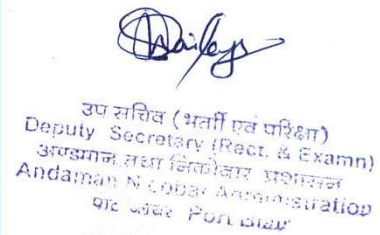 उप सचिव (भर्ती एवं परिक्षा)
Deputy Secretary (Rect. & Examn)
अण्डमान तथा निकोबार प्रशासन
Andaman N cobar Administration
Port Blair